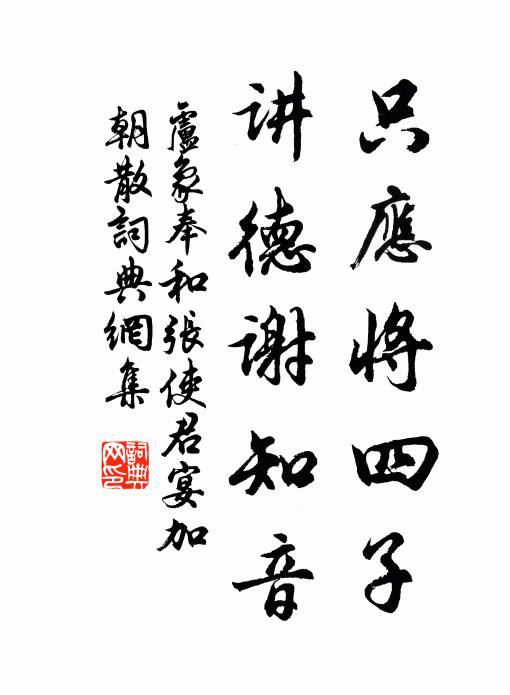 只應将四子
讲德谢知音
盧象奉和張使君宴加
朝散詞典網集
詞典網印